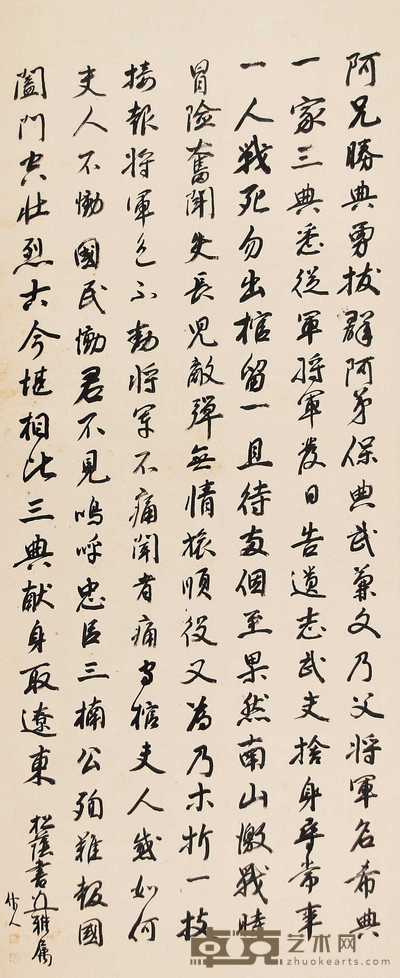 阿兄勝典勇拔群阿弟保典武兼文乃父將軍名希典
一家三典悉從軍將軍發日告遺志武夫捨身尋常事
一人戰死勿出棺留一且待兩個至果然南山激戰時
冒險奮鬪失長兒敵彈無情旅順役又為乃木折一枝
接報將軍色不動將軍不痛聞者痛守棺夫人感如何
夫人不慟國民慟君不見嗚呼忠臣三楠公殉難報國
闔門共壯烈古今堪相比三典献身取遼東
書 雅属
卓克艺术网
www.zhuokearts.com